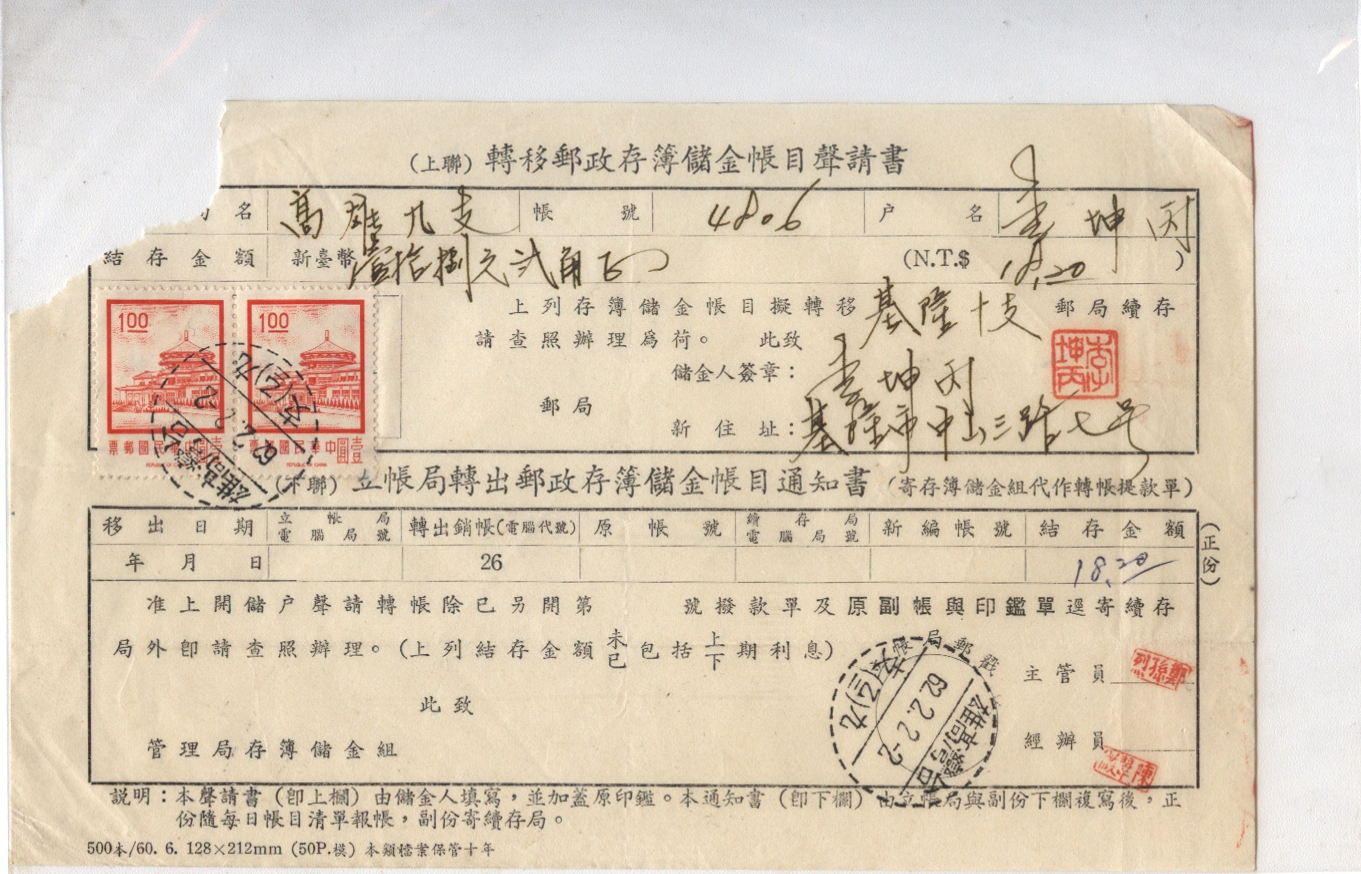 (上聯) 轉移郵政存簿儲金帳目聲請書
局名 高雄九支 帳號 4806 户名 李坤丙
結存金額 新臺幣 壹拾捌元貳角 (N.T.$ 18.20 )
上列存簿儲金帳目擬轉移 基隆十支 郵局續存
請查照辦理爲荷。 此致
儲金人簽章： 李坤丙
李坤丙
郵局
新住址： 基隆市中山三路七号
1.00 1.00
票郵國民華中 壹圓
票郵國民華中 壹圓
REPUBLIC OF CHINA
REPUBLIC OF CHINA
62.2.2
(下聯) 立帳局轉出郵政存簿儲金帳目通知書 (寄存簿儲金組代作轉帳提款單)
移出日期 立帳局電腦局號 轉出銷帳(電腦代號) 原帳號 續存局電腦局號 新編帳號 結存金額
年 月 日 26 18.20
(正份)
准上開儲户聲請轉帳除已另開第 號撥款單及原副帳與印鑑單逕寄續存
局外卽請查照辦理。(上列結存金額未已包括上下期利息)
帳局郵戳
62.2.2
主管員
此致
經辦員
管理局存簿儲金組
説明：本聲請書 (卽上欄) 由儲金人填寫，並加蓋原印鑑。本通知書 (卽下欄) 由立帳局與副份下欄複寫後，正
份隨每日帳目清單報帳，副份寄續存局。
500本/60. 6. 128×212mm (50P.模) 本類檔案保管十年